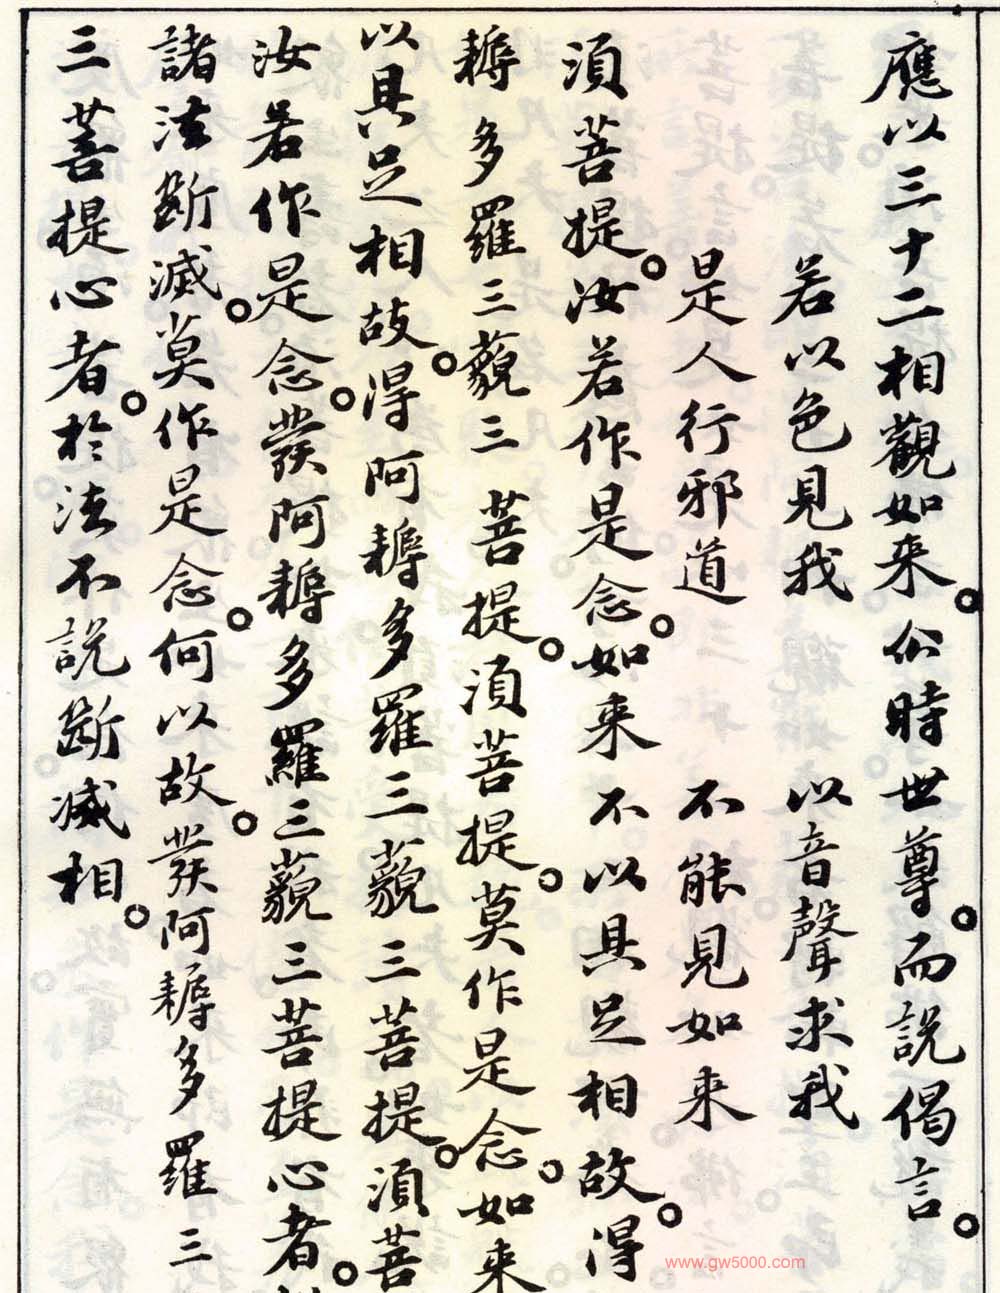 應以三十二相觀如來。尒時世尊。而說偈言。
若以色見我 以音聲求我
是人行邪道 不能見如來
須菩提。汝若作是念。如来不以具足相故。得
耨多羅三藐三菩提。須菩提。莫作是念。如来
以具足相故。得阿耨多羅三藐三菩提。須菩
汝若作是念。發阿耨多羅三藐三菩提心者
諸法斷滅。莫作是念。何以故。發阿耨多羅三
三菩提心者。於法不說斷滅相。
www.gw5000.com